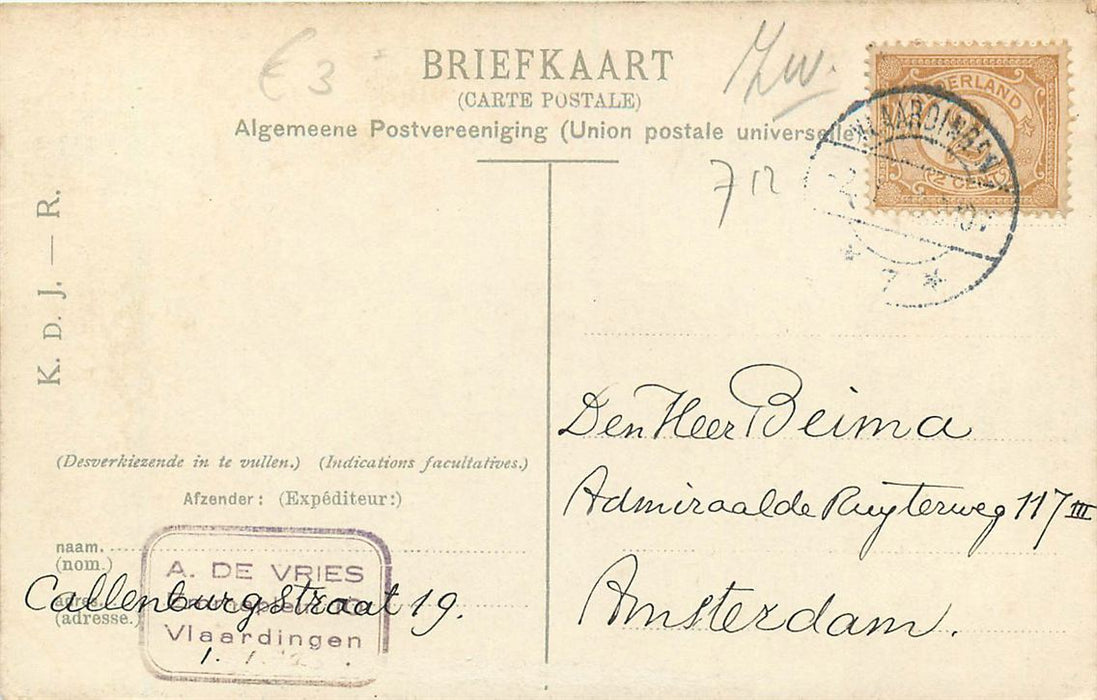 € 3
BRIEFKAART
Zw.
(CARTE POSTALE)
Algemeene Postvereeniging (Union postale universelle)
NEDERLAND
VLAARDINGEN
7 12
* 7 *
K. D. J. — R.
Den Heer Beima
Admiraal de Ruyterweg 117 III
Amsterdam.
(Desverkiezende in te vullen.) (Indications facultatives.)
Afzender: (Expéditeur:)
naam.
(nom.)
A. DE VRIES
adres.
Callenburgstraat 19.
(adresse.)
Vlaardingen